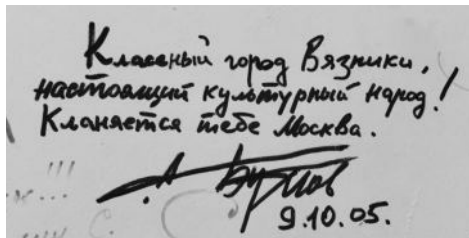 Классный город Вязники,
настоящий культурный народ!
Кланяется тебе Москва.
9.10.05.